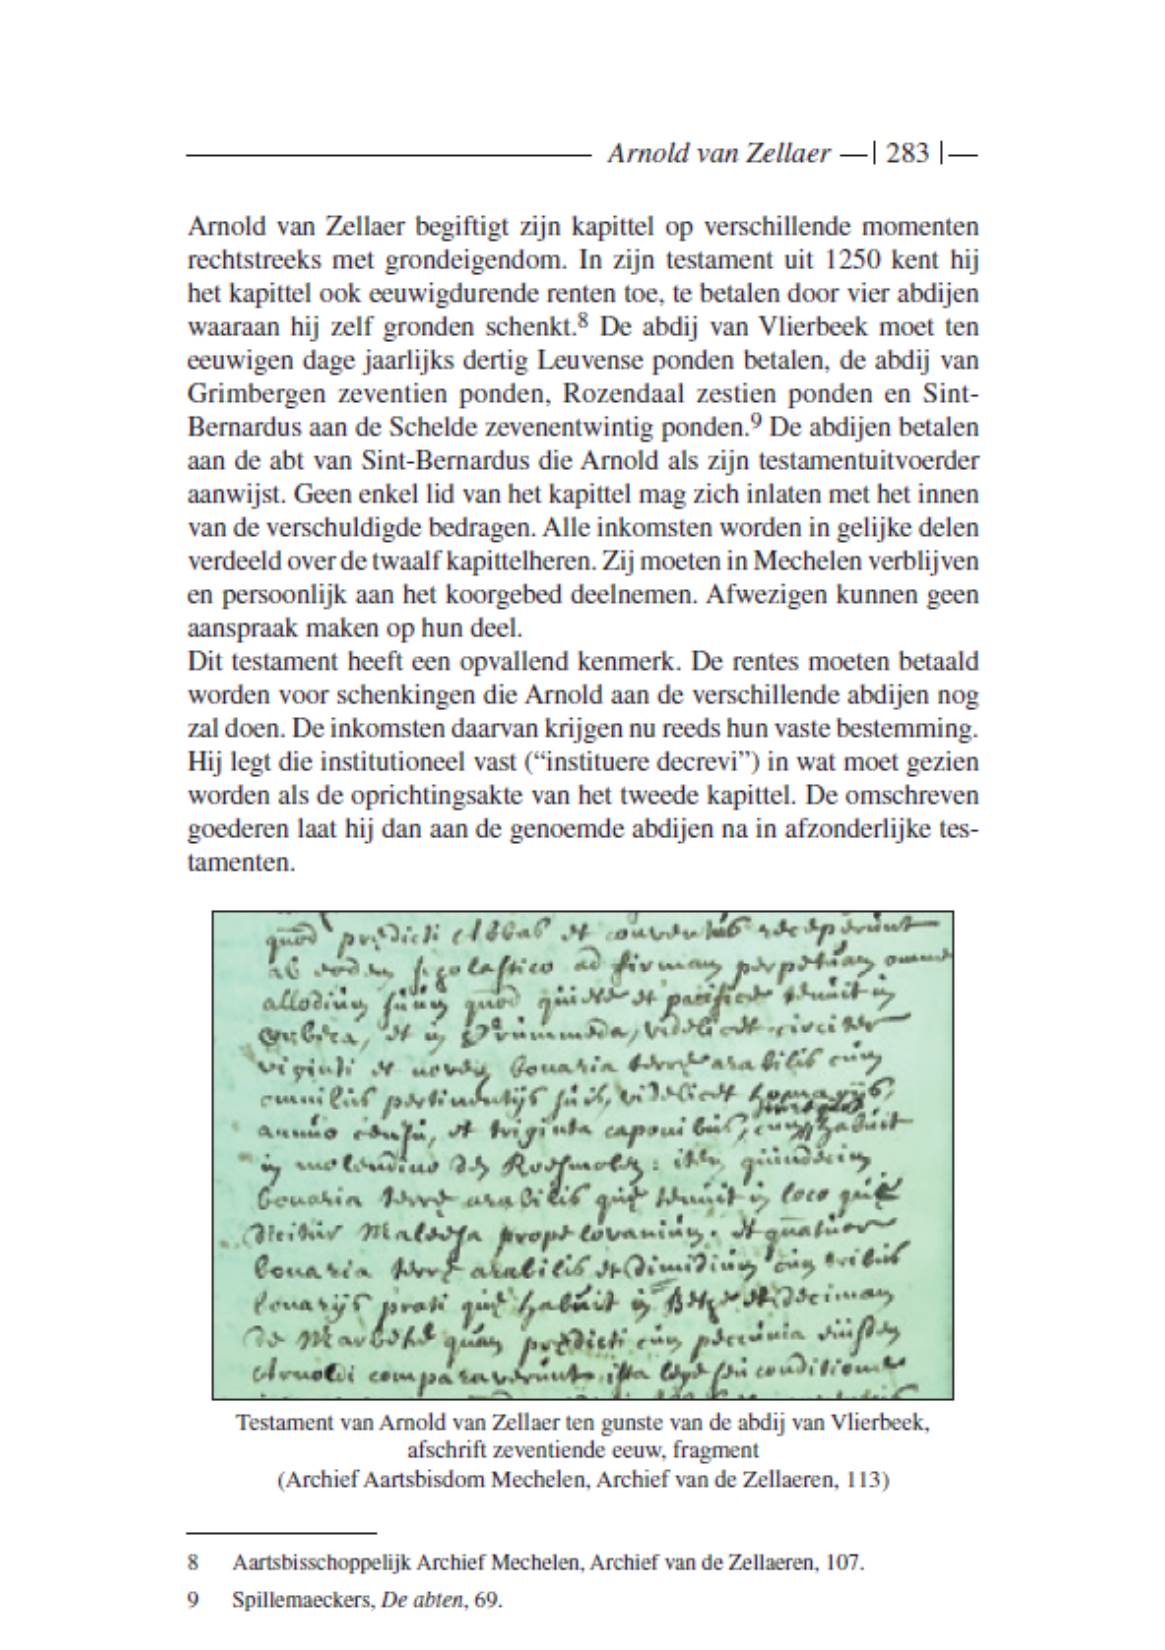 Arnold van Zellaer — | 283 | —
Arnold van Zellaer begiftigt zijn kapittel op verschillende momenten
rechtstreeks met grondeigendom. In zijn testament uit 1250 kent hij
het kapittel ook eeuwigdurende renten toe, te betalen door vier abdijen
waaraan hij zelf gronden schenkt.8 De abdij van Vlierbeek moet ten
eeuwigen dage jaarlijks dertig Leuvense ponden betalen, de abdij van
Grimbergen zeventien ponden, Rozendaal zestien ponden en Sint-
Bernardus aan de Schelde zevenentwintig ponden.9 De abdijen betalen
aan de abt van Sint-Bernardus die Arnold als zijn testamentuitvoerder
aanwijst. Geen enkel lid van het kapittel mag zich inlaten met het innen
van de verschuldigde bedragen. Alle inkomsten worden in gelijke delen
verdeeld over de twaalf kapittelheren. Zij moeten in Mechelen verblijven
en persoonlijk aan het koorgebed deelnemen. Afwezigen kunnen geen
aanspraak maken op hun deel.
Dit testament heeft een opvallend kenmerk. De rentes moeten betaald
worden voor schenkingen die Arnold aan de verschillende abdijen nog
zal doen. De inkomsten daarvan krijgen nu reeds hun vaste bestemming.
Hij legt die institutioneel vast (“instituere decrevi”) in wat moet gezien
worden als de oprichtingsakte van het tweede kapittel. De omschreven
goederen laat hij dan aan de genoemde abdijen na in afzonderlijke tes-
tamenten.
quod prędicti Abbas et conventus receperunt
ab eodem scolastico ad firmam perpetuam omne
allodium suum quod quiete et pacifice tenuit in
et in videlicet circiter
viginti et novem bonaria terrę arabilis cum
omnibus pertinentijs suis, videlicet
annuo censu, et triginta caponibus, habuit
in molendino de Roesmolen: item quindecim
bonaria terrę arabilis quę tenuit in loco qui
dicitur Maledsa prope Lovanium. et quatuor
bonaria terrę arabilis et dimidium cum tribus
bonarijs prati quę habuit in et decimam
de quam prędicti cum pecunia eiusdem
Arnoldi comparaverunt, ista lege seu conditione
Testament van Arnold van Zellaer ten gunste van de abdij van Vlierbeek,
afschrift zeventiende eeuw, fragment
(Archief Aartsbisdom Mechelen, Archief van de Zellaeren, 113)
8 Aartsbisschoppelijk Archief Mechelen, Archief van de Zellaeren, 107.
9 Spillemaeckers, De abten, 69.